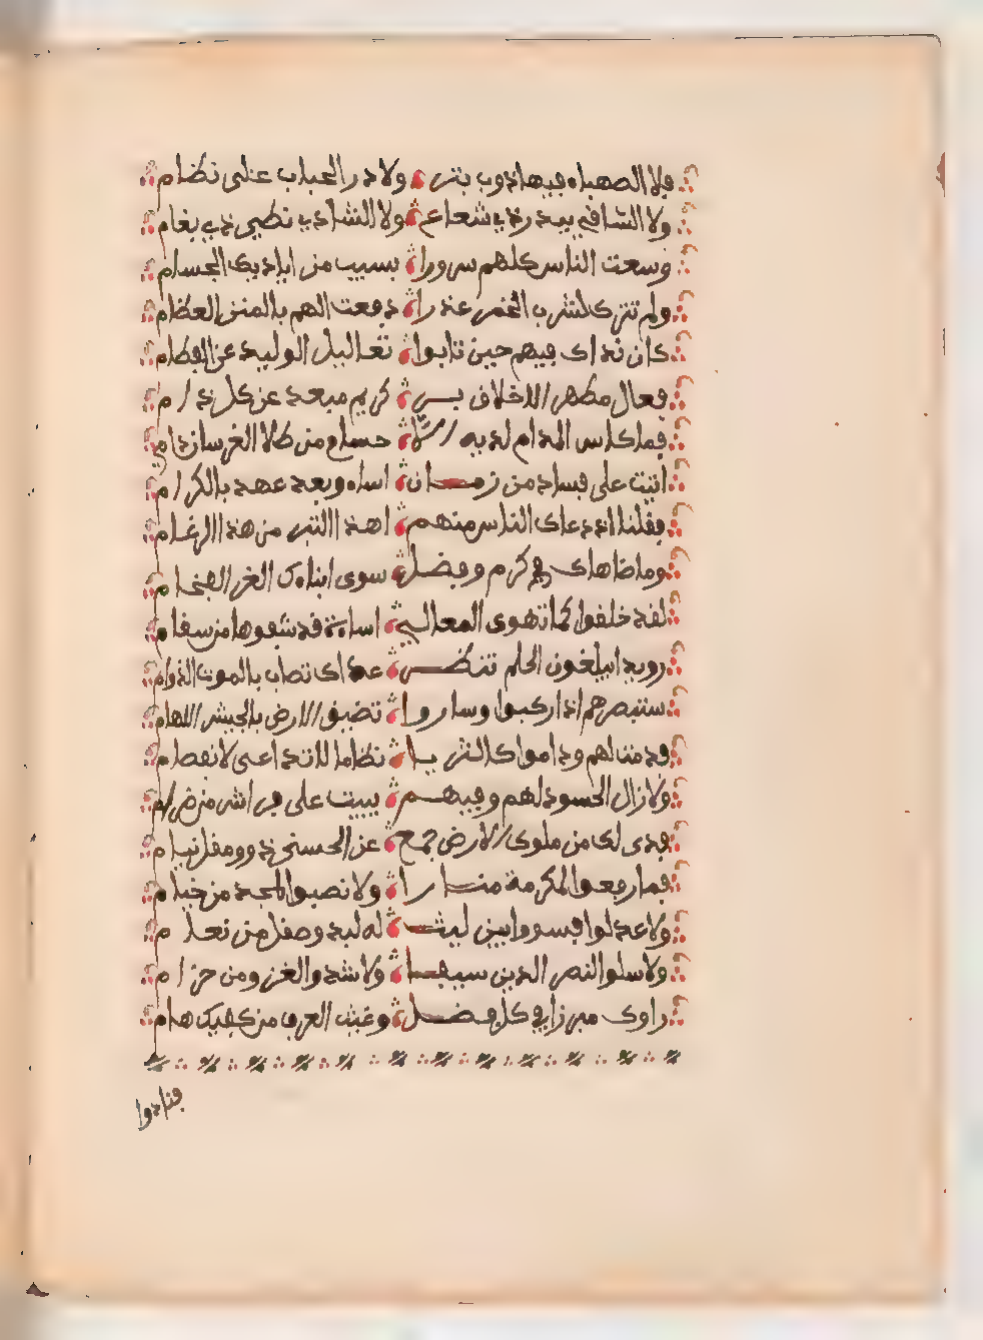 فلا الصهباء فيها ذوب تبر ولا در الحباب على نظام
ولا الساقي ببدر ذي شعاع ولا الشادي نظير ذي بغام
وسعت الناس كلهم سرورا بسيب من اياديك الجسام
ولم تترك لشرب الخمر عذرا دفعت الهم بالمنن العظام
كان نداك فيهم حين تابوا تعاليل الوليد عن الفطام
فعال مطهر الاخلاق بر كريم مبعد عن كل ذام
فما كاس المدام لديه حسام من طلا الفرسان دام
اتيت على فساد من زمان اساء وبعد عهد بالكرام
فقلنا اذ دعاك الناس منهم اهذا التبر من هذا الرغام
وما ضاهاك في كرم وفضل سوى ابناءك الغر الفخام
لقد خلقوا كما تهوى المعالي اساة قد شفوها من سقام
رويدا يبلغون الحلم تنظر عداك تصاب بالموت الزوام
ستبصرهم اذا ركبوا وساروا تضيق الارض بالجيش اللهام
فدمت لهم وداموا كالثريا نظاما لا تداعى لانفصام
ولا زال الحسود لهم وفيهم يبيت على فراش من ضرام
فدى لك من ملوك الارض جمع عن الحسنى ذوو مقل نيام
فما رفعوا لمكرمة منارا ولا نصبوا لمجد من خيام
ولا عدلوا فيسووا بين ليث له لبد وصقل من نعام
ولا سلوا لنصر الدين سيفا ولا شدوا لغزو من حزام
راوك مبرزا في كل فضل وغيث العرف من كفيك هام
فنادوا